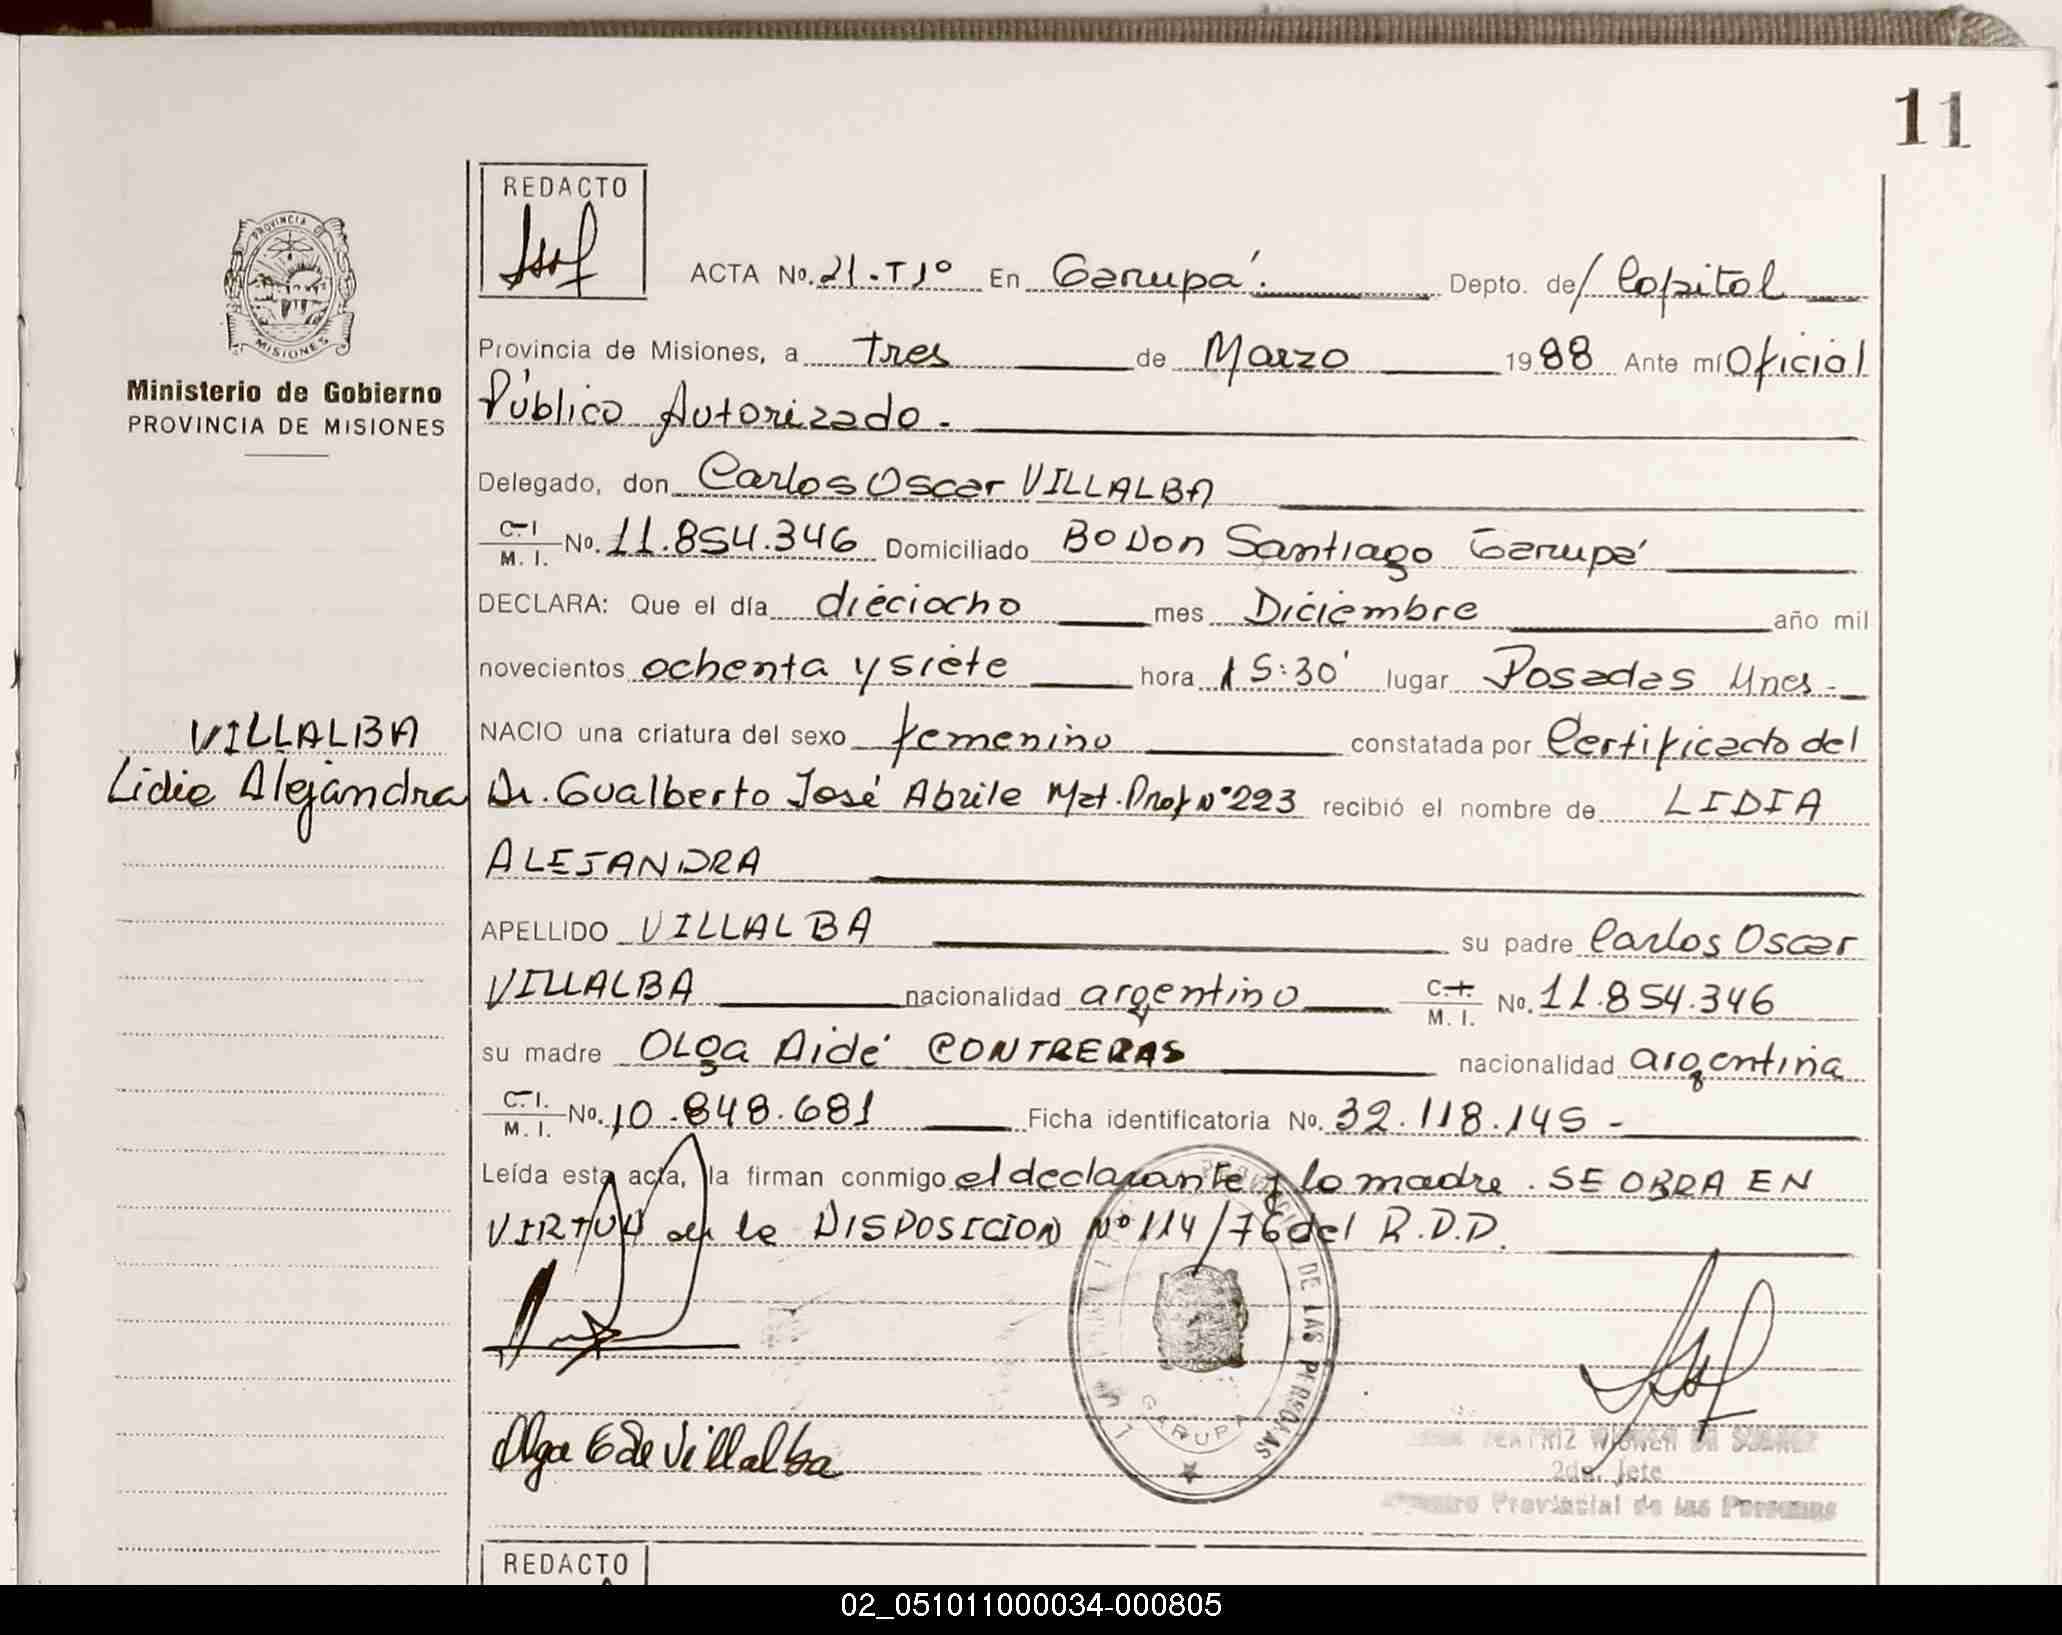 11
REDACTO
PROVINCIA DE
MISIONES
Ministerio de Gobierno
PROVINCIA DE MISIONES
ACTA No. 21-Tº1º En Garupá. Depto. de / Capital
Provincia de Misiones, a tres de Marzo 1988 Ante mí Oficial
Público Autorizado.
Delegado, don Carlos Oscar VILLALBA
C.I. M.I. No. 11.854.346 Domiciliado Bº Don Santiago Garupá
DECLARA: Que el día dieciocho mes Diciembre año mil
novecientos ochenta y siete hora 15:30' lugar Posadas Mnes.-
NACIO una criatura del sexo femenino constatada por Certificado del
Dr. Gualberto José Abrile Mat. Prof Nº 223 recibió el nombre de LIDIA
ALEJANDRA
VILLALBA
Lidia Alejandra
APELLIDO VILLALBA su padre Carlos Oscar
VILLALBA nacionalidad argentino C.I. M.I. No. 11.854.346
su madre OLga Aidé CONTRERAS nacionalidad argentina
C.I. M.I. No. 10.848.681 Ficha identificatoria No. 32.118.145-
Leída esta acta, la firman conmigo el declarante y la madre. SE OBRA EN
VIRTUD de la DISPOSICION Nº 114/76 del R.D.D.
DE LAS PERSONAS
GARUPA
Olga C de Villalba
BEATRIZ DE SUAREZ
2da. Jefe
Registro Provincial de las Personas
REDACTO
02_051011000034-000805